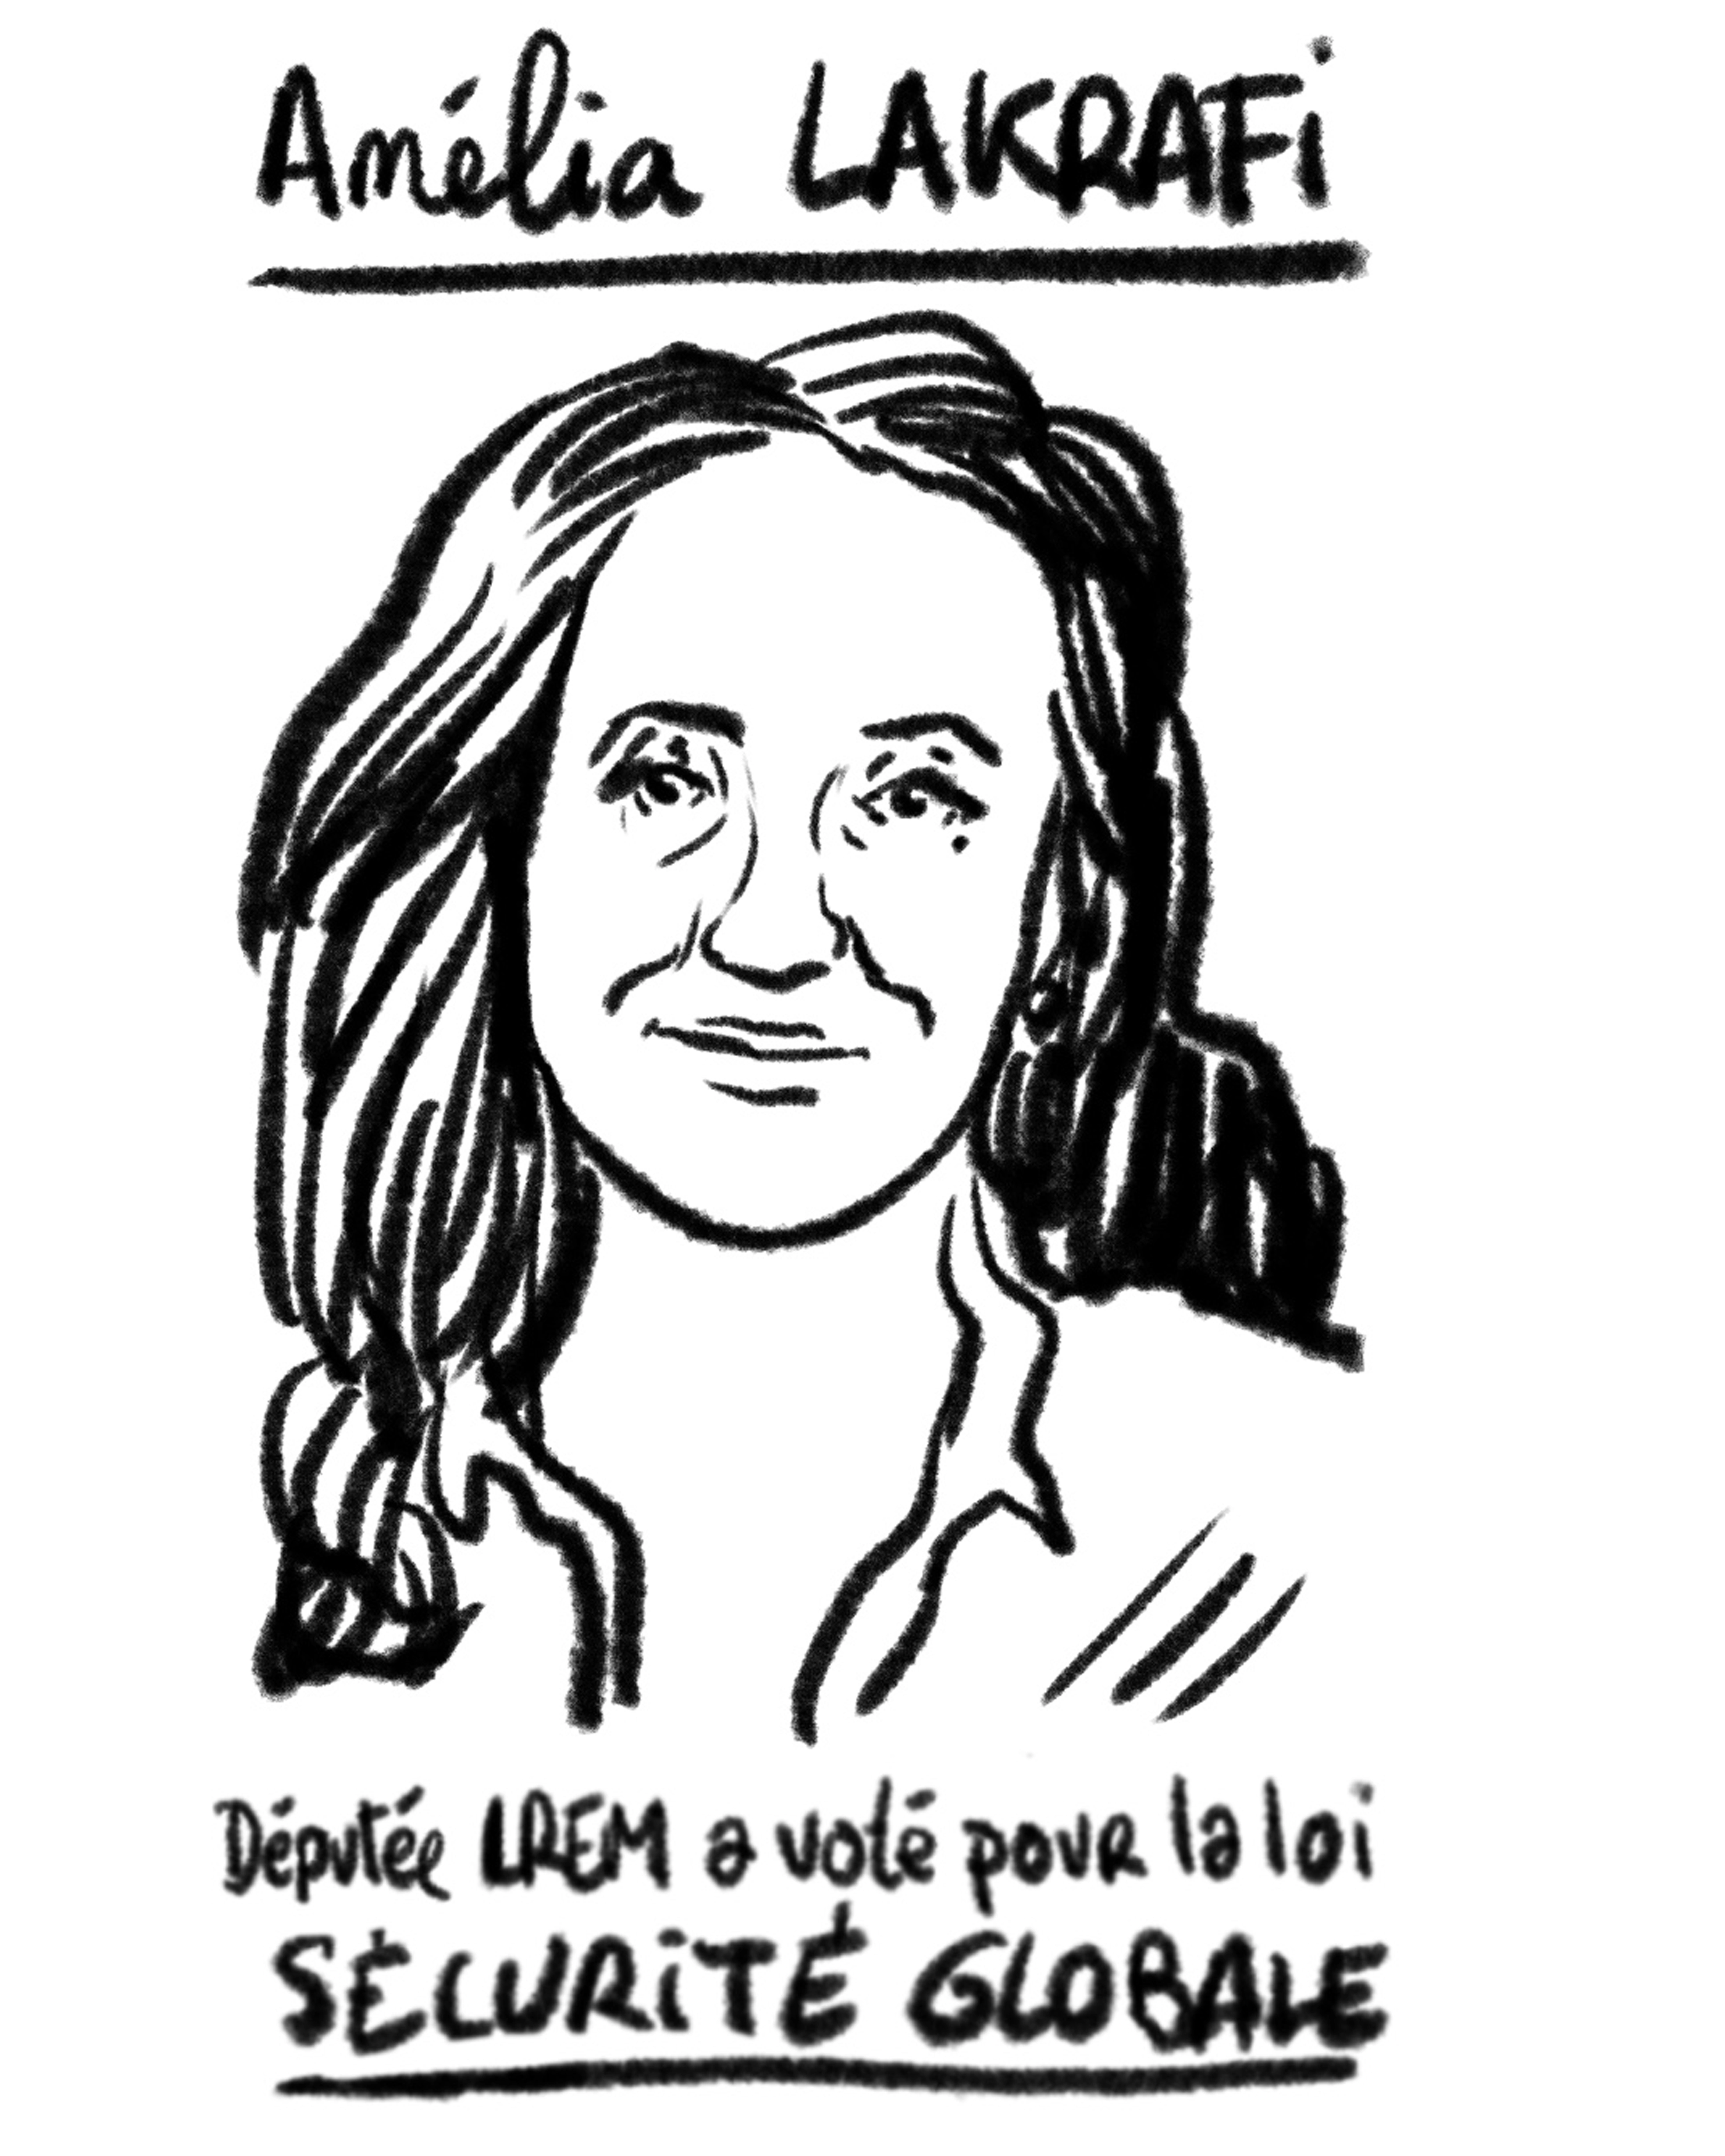 Amélia LAKRAFi
Députée LREM a voté pour la loi
SÉCURiTÉ GLOBALE